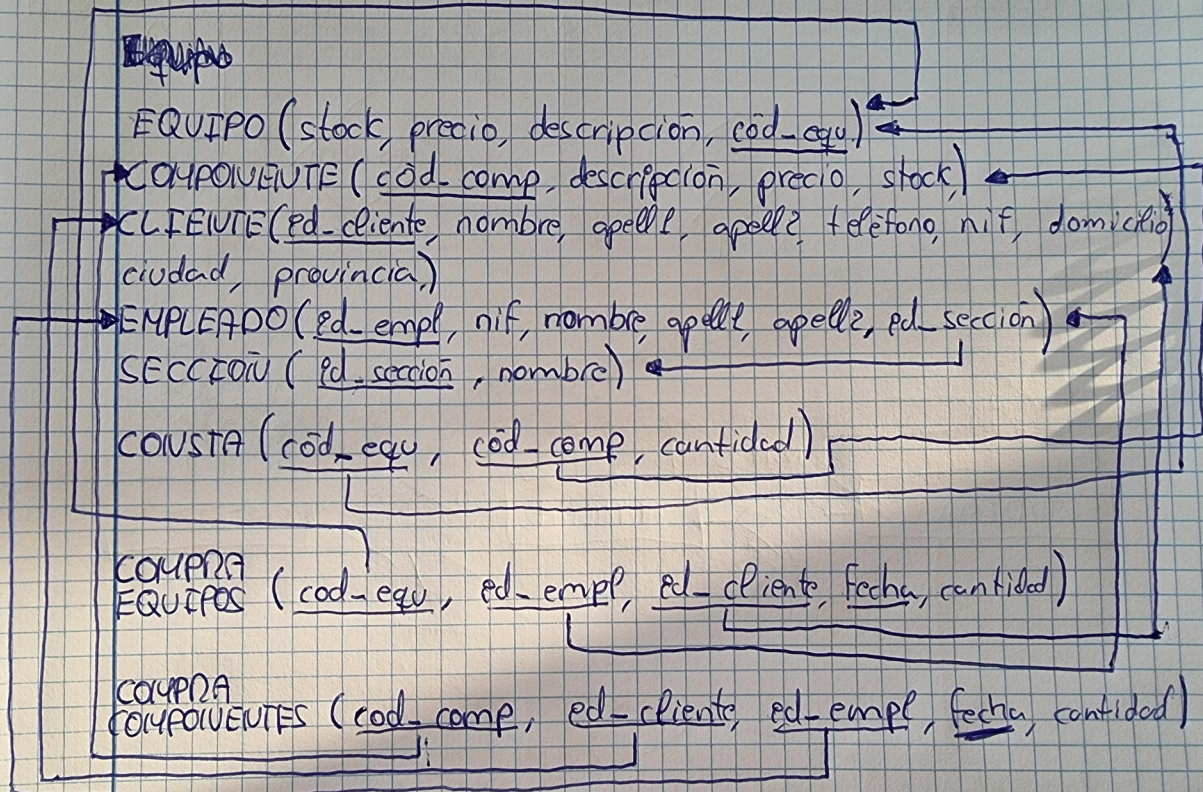 EQUIPO (stock, precio, descripción, cód_equ)
COMPONENTE (cód_comp, descripción, precio, stock)
CLIENTE (id_cliente, nombre, apell1, apell2, teléfono, nif, domicilio
ciudad, provincia,)
EMPLEADO (id_empl, nif, nombre, apell1, apell2, id_sección)
SECCIÓN (id_sección, nombre)
CONSTA (cód_equ, cód_comp, cantidad)
COMPRA
EQUIPOS (cod_equ, id_empl, id_cliente, fecha, cantidad)
COMPRA
COMPONENTES (cod_comp, id_cliente, id_empl, fecha, cantidad)